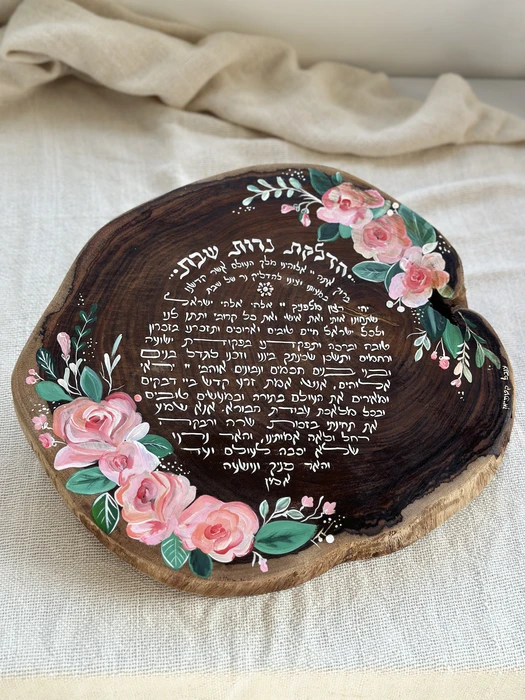 "הדלקת נרות שבת"
ברוך אתה יי אלוהינו מלך העולם אשר קדשנו
במצוותיו וציונו להדליק נר של שבת
יהי רצון מלפניך יי אלהי ואלהי ישראל
שתחונן אותי ואת אישי ואת כל קרובי ותתן לנו
ולכל ישראל חיים טובים וארוכים ותזכרנו בזכרון
טובה וברכה ותפקדנו בפקודת ישועה
ורחמים ותשכן שכנתך בינינו וזכנו לגדל בנים
ובני בנים חכמים ונבונים אוהבי יי יראי
אלוהים, אנשי אמת זרע קדש ביי דבקים
ומאירים את העולם בתורה ובמעשים טובים
ובכל מלאכת עבודת הבורא. אנא שמע
את תחינתי בזכות שרה רבקה
רחל ולאה אמותינו, והאר נרנו
שלא יכבה לעולם ועד
והאר פניך ונושעה
אמן